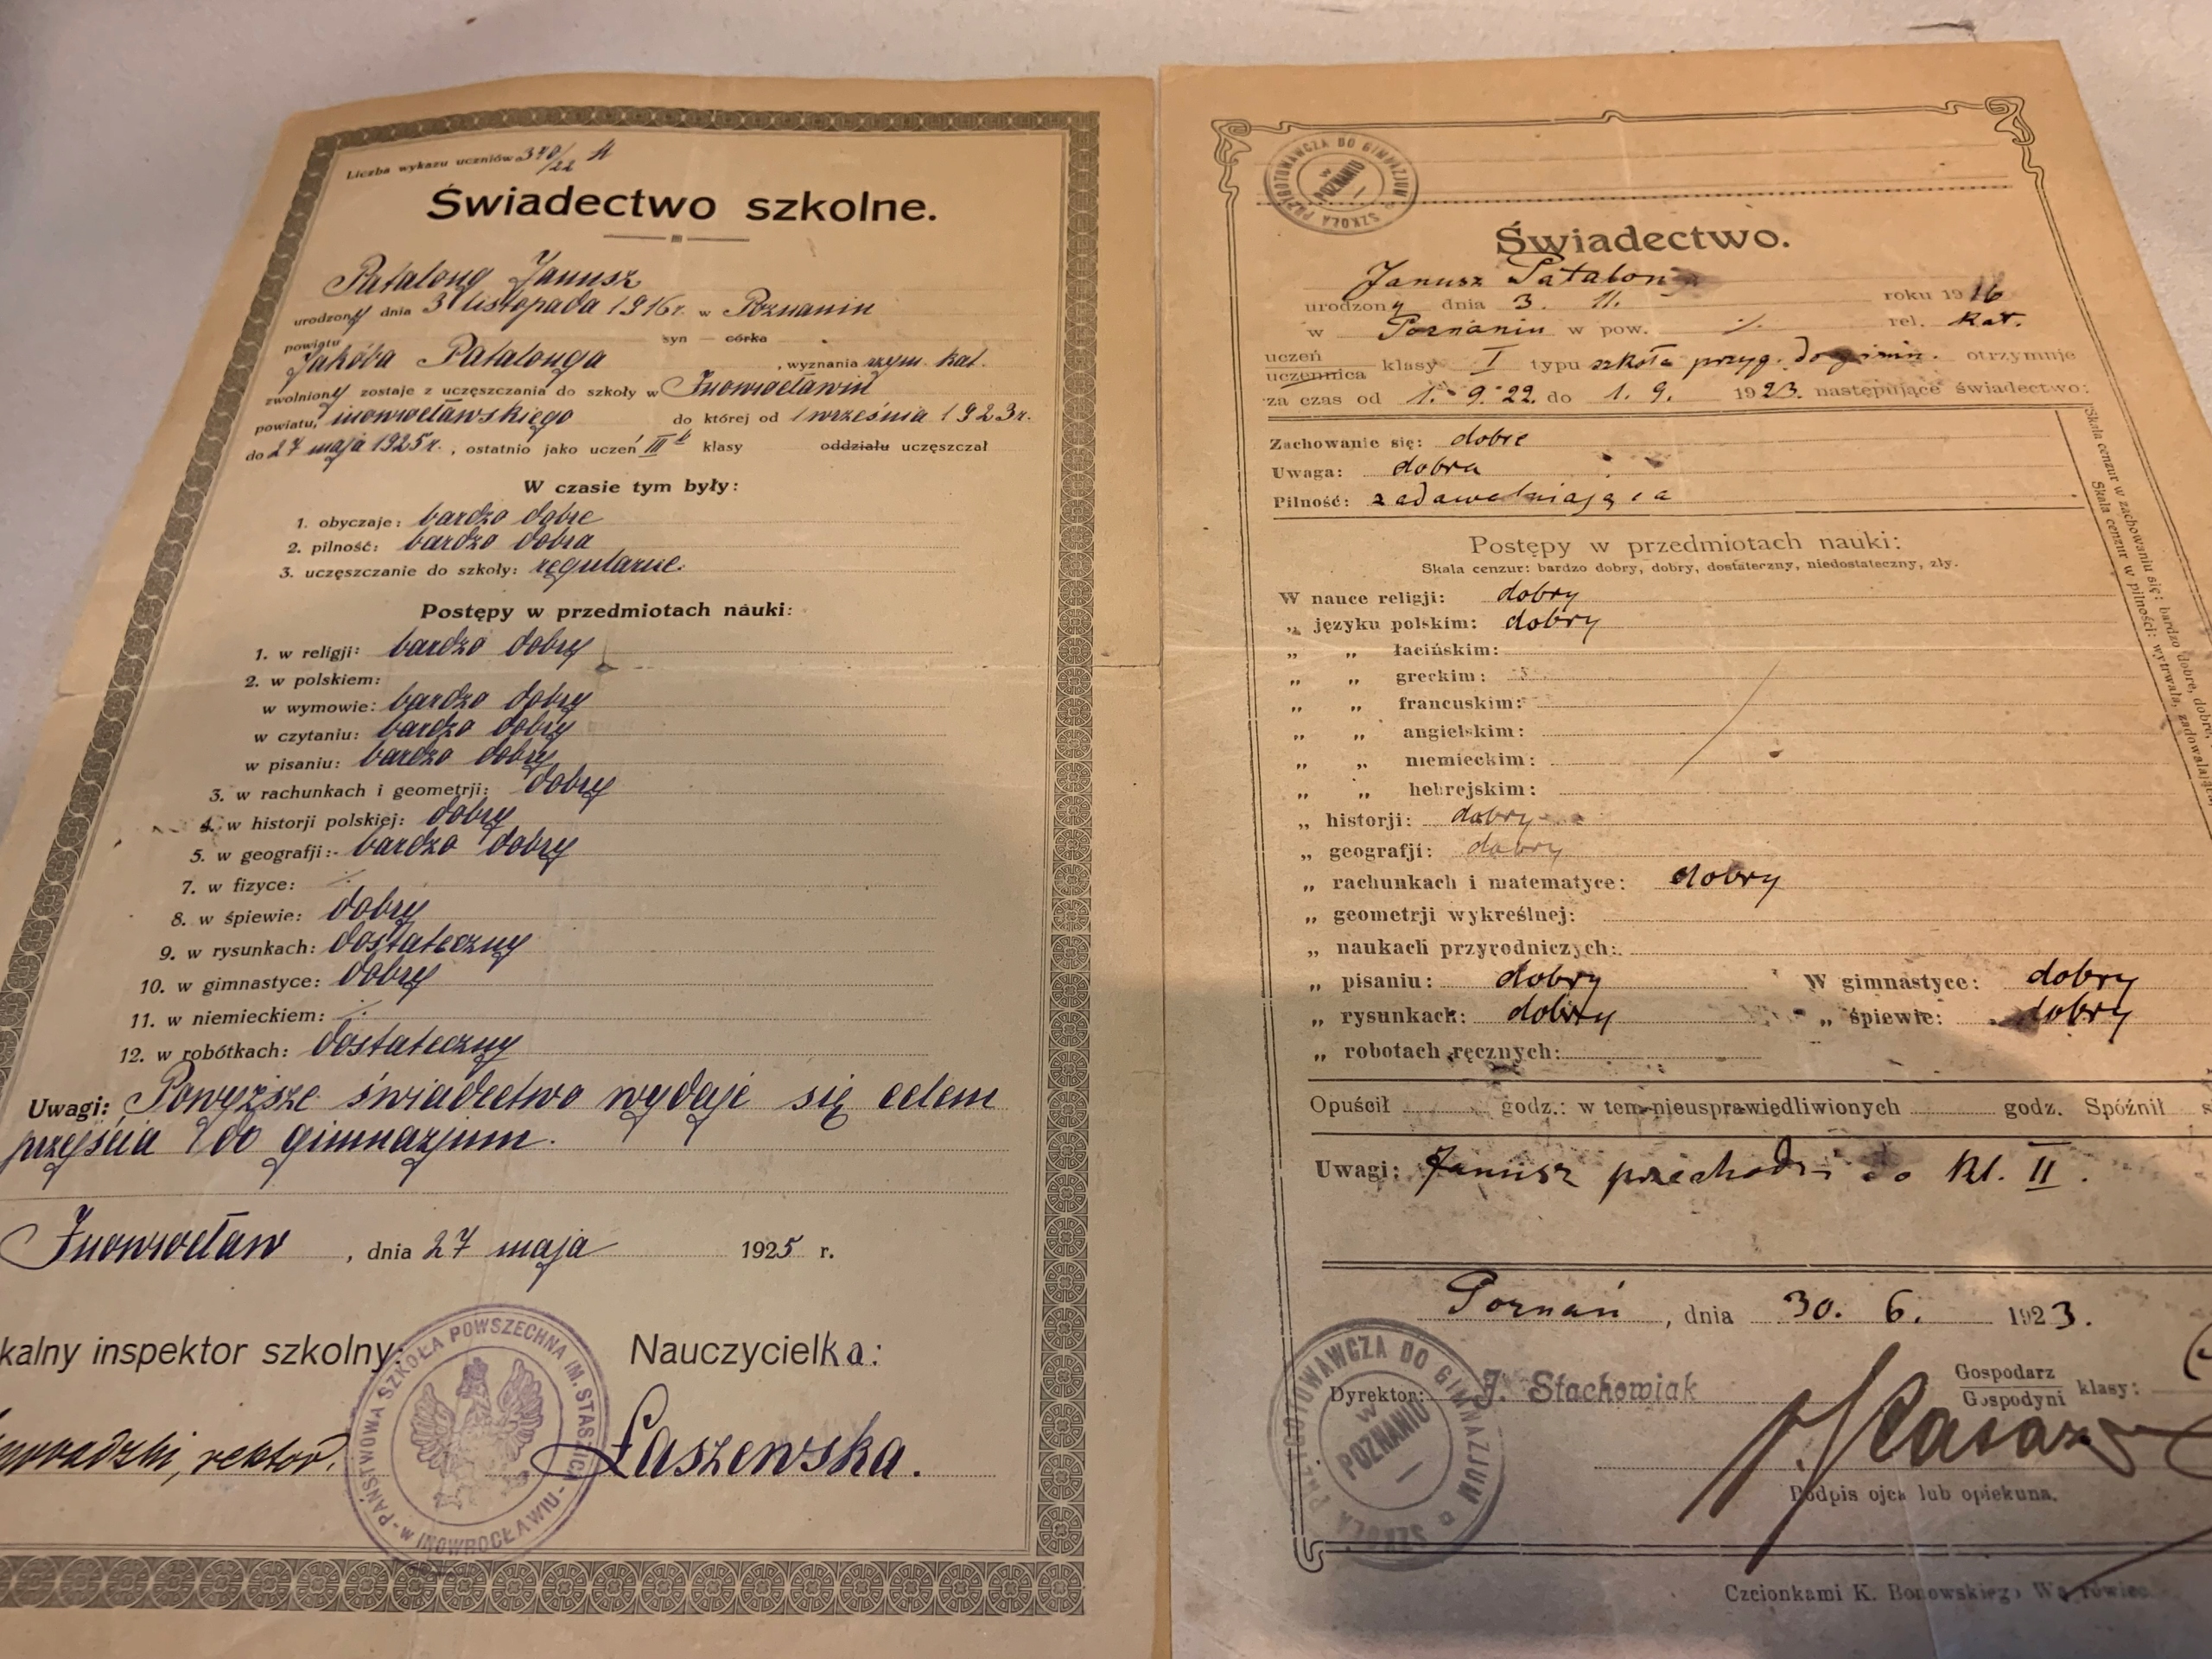 Liczba wykazu uczniów 370/22 A
Świadectwo szkolne.
Patalong Janusz
urodzony dnia 3 listopada 1916 r. w Poznaniu
powiatu syn — córka
Jakóba Patalonga , wyznania rzym. kat.
zwolniony zostaje z uczęszczania do szkoły w Inowrocławiu
powiatu, inowrocławskiego do której od 1 września 1923 r.
do 27 maja 1925 r. , ostatnio jako uczeń III b klasy oddziału uczęszczał
W czasie tym były:
1. obyczaje: bardzo dobre
2. pilność: bardzo dobra
3. uczęszczanie do szkoły: regularne.
Postępy w przedmiotach nauki:
1. w religji: bardzo dobry
2. w polskiem:
w wymowie: bardzo dobry
w czytaniu: bardzo dobry
w pisaniu: bardzo dobry
3. w rachunkach i geometrji: dobry
4. w historji polskiej: dobry
5. w geografji: bardzo dobry
7. w fizyce: ./.
8. w śpiewie: dobry
9. w rysunkach: dostateczny
10. w gimnastyce: dobry
11. w niemieckiem: ./.
12. w robótkach: dostateczny
Uwagi: Powyższe świadectwo wydaje się celem
przejścia do gimnazjum.
Inowrocław , dnia 27 maja 1925 r.
kalny inspektor szkolny: Nauczycielka:
rektor. Łaszewska.
PAŃSTWOWA SZKOŁA POWSZECHNA IM. STASZICA - w INOWROCŁAWIU -
SZKOŁA PRZYGOTOWAWCZA DO GIMNAZJUM
w
POZNANIU
Świadectwo.
Janusz Patalong
urodzony dnia 3. 11. roku 1916
w Poznaniu w pow. ./. rel. kat.
uczeń
uczennica klasy I typu szkoła przyg. do gimn. otrzymuje
za czas od 1. 9. 22. do 1. 9. 1923. następujące świadectwo:
Zachowanie się: dobre
Uwaga: dobra
Pilność: zadawalniająca
Skala cenzur w zachowaniu się: bardzo dobre, dobre,
Skala cenzur w pilności: wytrwała, zadowalając
Postępy w przedmiotach nauki:
Skala cenzur: bardzo dobry, dobry, dostateczny, niedostateczny, zły.
W nauce religji: dobry
„ języku polskim: dobry
„ „ łacińskim:
„ „ greckim:
„ „ francuskim:
„ „ angielskim:
„ „ niemieckim:
„ „ hebrejskim:
„ historji: dobry
„ geografji: dobry
„ rachunkach i matematyce: dobry
„ geometrji wykreślnej:
„ naukach przyrodniczych:
„ pisaniu: dobry W gimnastyce: dobry
„ rysunkach: dobry „ śpiewie: dobry
„ robotach ręcznych:
Opuścił godz.: w tem nieusprawiedliwionych godz. Spóźnił s
Uwagi: Janusz przechodzi do kl. II.
Poznań , dnia 30. 6. 1923.
Dyrektor: J. Stachowiak
Gospodarz
Gospodyni klasy:
SZKOŁA PRZYGOTOWAWCZA DO GIMNAZJUM
w
POZNANIU
Podpis ojca lub opiekuna.
Czcionkami K. Bonowskiego Wą rówiec